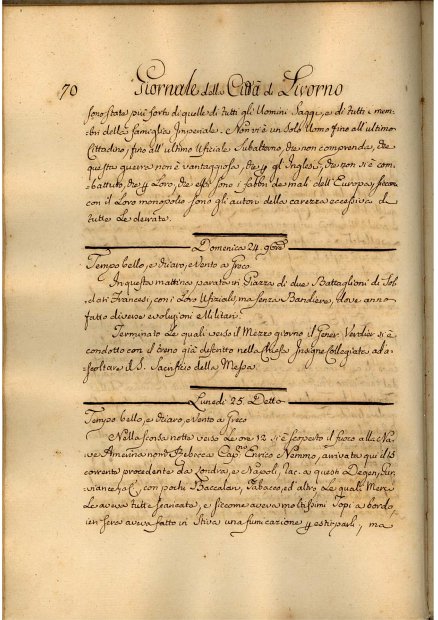 70 Giornale della Città di Livorno
sono state più forti di quelle di tutti gli Uomini Saggi, e di tutti i mem-
bri della famiglia Imperiale. Non vi è un solo Uomo fino all'ultimo
Cittadino, fino all'ultimo Ufiziale Subalterno, che non comprende, che
questa guerra non è vantaggiosa, che p gl'Inglesi, che non si è com-
battuto, che p Loro, che essi sono i fabbri de mali dell'Europa, siccome
con il Loro monopolio sono gli autori della carezza eccessiva di
tutte Le derrate.
Domenica 24. 9bre
Tempo bello, e chiaro, e Vento a Greco
In questa mattina parata in Piazza di due Battaglioni di Sol-
dati Francesi, con i Loro Ufiziali, ma senza Bandiere, dove anno
fatto diverse evoluzioni Militari.
Terminate Le quali verso il Mezzo giorno il Gener. Verdier si è
condotto con il treno già descritto nella Chiesa Insigne Collegiata ad a-
scoltare il S. Sacrifizio della Messa.
Lunedì 25. Detto
Tempo bello, e chiaro, e Vento a Greco
Nella scorsa notte verso Le ore 12 si è scoperto il fuoco alla Na-
ve Americana nom. Rebecca Cap. Enrico Nemmo, arrivata qui il 15
corrente procedente da Londra, e Napoli, rac. a questi Degen, Pur-
viance, e C., con pochi Baccalari, Tabacco, ed altro Le quali Merci
Le aveva tutte scaricate, e siccome aveva moltissimi Topi a bordo,
ieri sera aveva fatto in Stiva una fumicazione p estirparli, ma